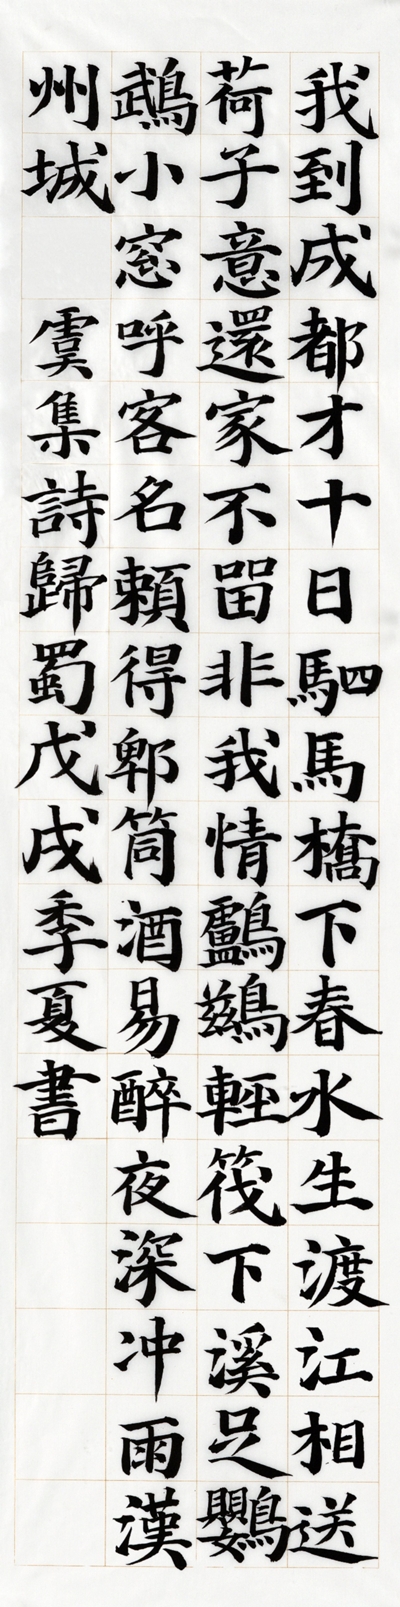 我到成都才十日駟馬橋下春水生渡江相送
荷子意還家不留非我情鸕鷀輕筏下溪足鸚
鵡小窓呼客名賴得郫筒酒易醉夜深冲雨漢
州城 虞集詩歸蜀戊戌季夏書